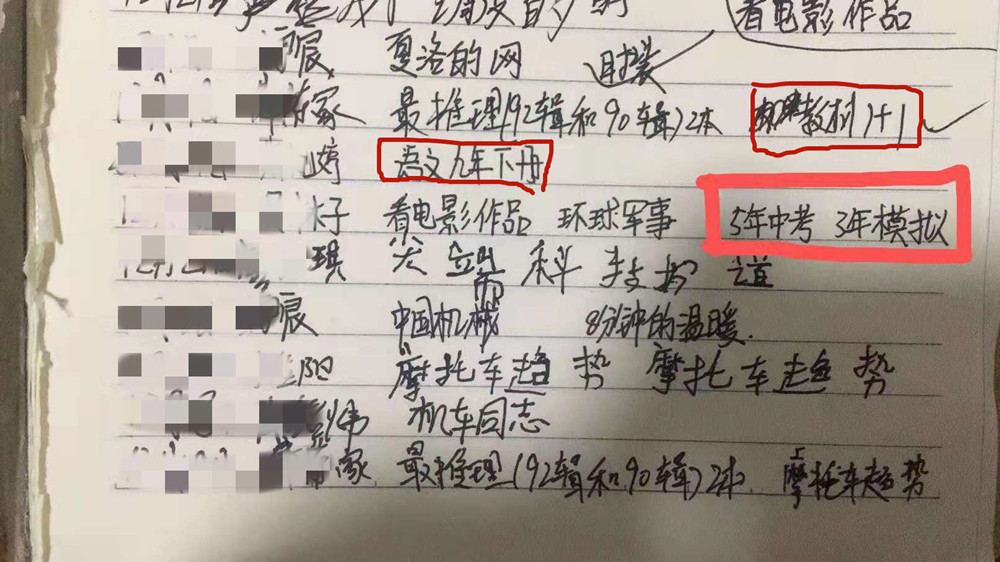 看电影作品
夏洛的网 时装
家 最推理(92辑和90辑)2本 教材 1+1
婷 语文九年下册
好 看电影作品 环球军事 5年中考 3年模拟
琪 尖端科技 道
中国机械 8分钟的温暖.
阳 摩托车趋势 摩托车趋势
伟 机车同志
家 最推理(92辑和90辑)2本 摩托车趋势